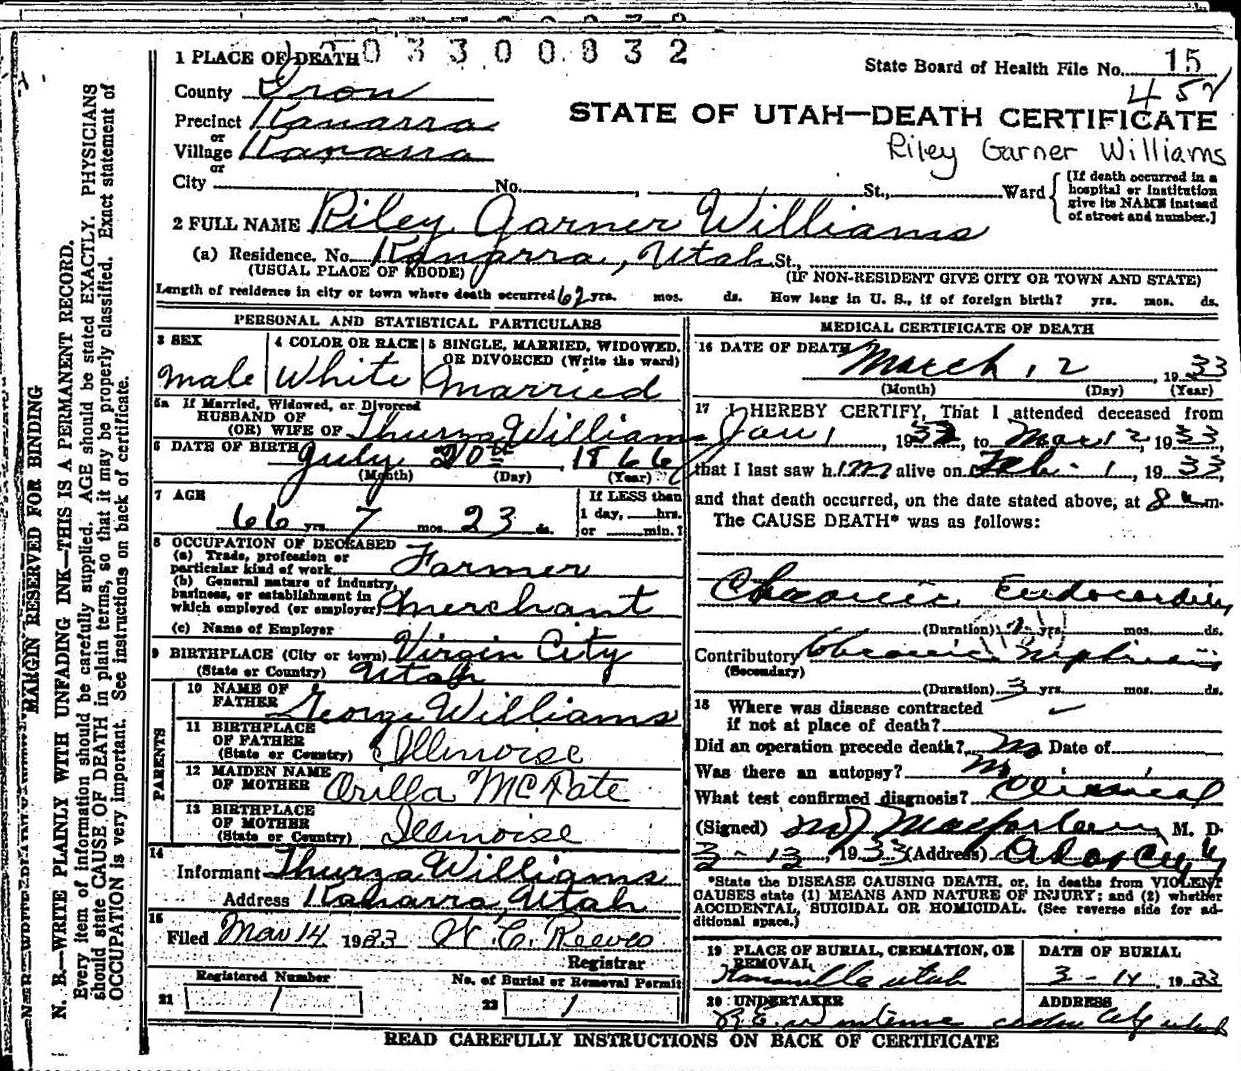 0 3 3 0 0 0 3 2
1 PLACE OF DEATH
State Board of Health File No. 15
452
County Iron
STATE OF UTAH—DEATH CERTIFICATE
Precinct Kanarra
or
Village Kanarra
or
Riley Garner Williams
City No. , St., Ward
[If death occurred in a hospital or institution give its NAME instead of street and number.]
2 FULL NAME Riley Garner Williams
(a) Residence. No. Kanarra, Utah St.,
(USUAL PLACE OF ABODE) (IF NON-RESIDENT GIVE CITY OR TOWN AND STATE)
Length of residence in city or town where death occurred 62 yrs. mos. ds. How long in U. S., if of foreign birth? yrs. mos. ds.
PERSONAL AND STATISTICAL PARTICULARS
3 SEX
Male
4 COLOR OR RACE
White
5 SINGLE, MARRIED, WIDOWED, OR DIVORCED (Write the word)
Married
5a If Married, Widowed, or Divorced
HUSBAND OF
(OR) WIFE OF Thurza Williams
6 DATE OF BIRTH July 20th 1866
(Month) (Day) (Year)
7 AGE
66 yrs. 7 mos. 23 ds.
If LESS than
1 day, hrs.
or min.?
8 OCCUPATION OF DECEASED
(a) Trade, profession or
particular kind of work Farmer
(b) General nature of industry,
business, or establishment in
which employed (or employer) Merchant
(c) Name of Employer
9 BIRTHPLACE (City or town) Virgin City
(State or Country) Utah
PARENTS
10 NAME OF
FATHER George Williams
11 BIRTHPLACE
OF FATHER
(State or Country) Illinoise
12 MAIDEN NAME
OF MOTHER Orilla McFate
13 BIRTHPLACE
OF MOTHER
(State or Country) Illinoise
14
Informant Thurza Williams
Address Kanarra, Utah
15
Filed Mar 14 1933 W. C. Reeves
Registrar
Registered Number
21 1
No. of Burial or Removal Permit
22 1
MEDICAL CERTIFICATE OF DEATH
16 DATE OF DEATH
March, 12, 1933
(Month) (Day) (Year)
17 I HEREBY CERTIFY, That I attended deceased from
Jan 1, 1932, to Mar 12, 1933,
that I last saw him alive on Feb. 1, 1933
and that death occurred, on the date stated above, at 8 m.
The CAUSE DEATH* was as follows:
Chronic Endocarditis
(Duration) yrs. mos. ds.
Contributory Chronic Nephritis
(Secondary)
(Duration) 3 yrs. mos. ds.
18 Where was disease contracted
if not at place of death?
Did an operation precede death? No Date of
Was there an autopsy? No
What test confirmed diagnosis? Clinical
(Signed) M J Macfarlane, M. D.
3-13, 1933 (Address) Cedar City
*State the DISEASE CAUSING DEATH, or, in deaths from VIOLENT
CAUSES state (1) MEANS AND NATURE OF INJURY; and (2) whether
ACCIDENTAL, SUICIDAL OR HOMICIDAL. (See reverse side for ad-
ditional space.)
19 PLACE OF BURIAL, CREMATION, OR
REMOVAL
Utah
DATE OF BURIAL
3-14, 1933
20 UNDERTAKER
ADDRESS
Cedar City Utah
READ CAREFULLY INSTRUCTIONS ON BACK OF CERTIFICATE
MARGIN RESERVED FOR BINDING
N. B.—WRITE PLAINLY WITH UNFADING INK—THIS IS A PERMANENT RECORD.
Every item of information should be carefully supplied. AGE should be stated EXACTLY. PHYSICIANS
should state CAUSE OF DEATH in plain terms, so that it may be properly classified. Exact statement of
OCCUPATION is very important. See instructions on back of certificate.